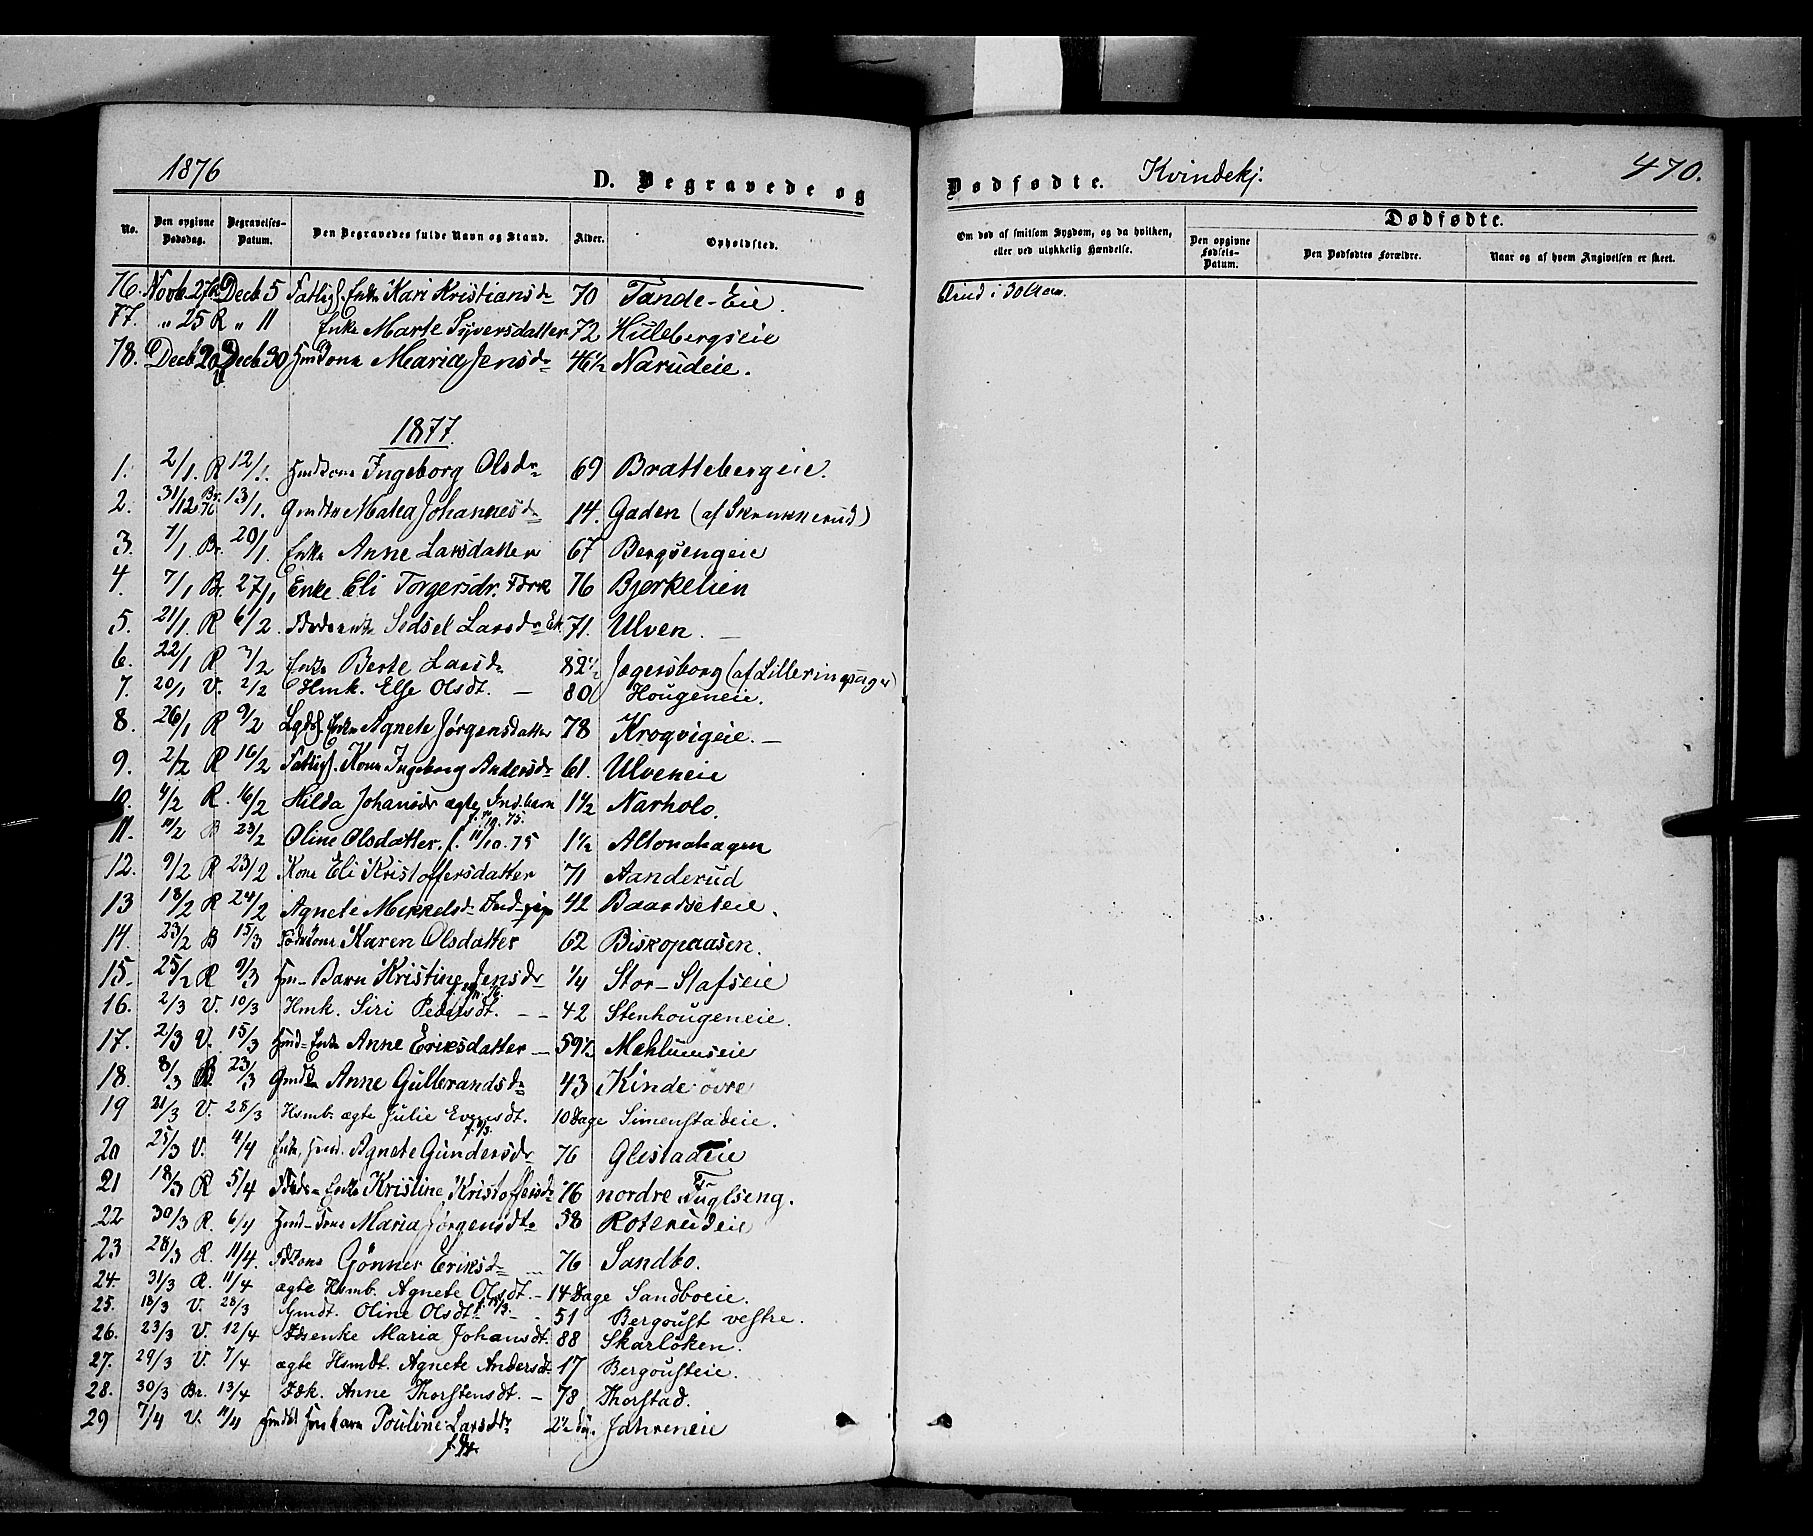 1876
D. Begravede og
Dødfødte. Kvindekj. 470.
No. Den opgivne Dødsdag. Begravelses-Datum. Den Begravedes fulde Navn og Stand. Alder. Opholdsted.
Om død af smitsom Sygdom, og da hvilken, eller ved ulykkelig Hændelse. Den opgivne Fødsels-Datum. Dødfødte. Den Dødfødtes Forældre. Naar og af hvem Angivelsen er skeet.
76. Novb. Decb 5 Fattigl. Enke Kari Kristiansdr 70 Tande-Eie
77. " 25 R " 11 Enke Marte Syversdatter 72 Hulebergseie
78. Decb 20 Decb 30 Kone Maria Jensdr 46 1/2 Narudeie.
1877
1. 2/1. R 12/1. Ingeborg Olsdr 69 Brattebergeie.
2. 31/12 76 Br. 13/1. Matea Johannesdr 14. Gaden (af Skrukkerud)
3. 7/1. Br. 20/1. Enke Anne Larsdatter 67 Bergsengeie
4. 7/1 Br. 27/1 Enke Eli Torgersdr. 76 Bjerkelien
5. 21/1. R 6/2. Sidsel Larsdr 71. Ulven. —
6. 22/1 R 7/2 Enke Berte Larsdr 82 1/2 Jegersborg (af Lilleringsager)
7. 20/1 V. 2/2 Hmk. Else Olsdt. — 80 Hougeneie.
8. 26/1 R 9/2 Lgdsl. Enke Agnete Jørgensdatter 78 Krogvigeie. —
9. 2/2 R 16/2 Fattigl. Kone Ingeborg Andersdr 61. Ulveneie
10. 4/2 R. 16/2 Hilda Johansdr ægte Ind. barn 1 1/2 Narholo.
11. 11/2 B 23/2 Oline Olsdatter. f. 11/10. 75 1 1/2 Altonahagen
12. 9/2 R 23/2 Kone Eli Kristoffersdatter 71 Aanderud
13 18/2 R 24/2 Agnete Mikkelsdr Ind. pige 42 Baardseteie.
14. 23/2 B 15/3 Karen Olsdatter 62 Biskopaasen.
15. 25/2 R 9/3 Barn Kristine Jensdr 1/4 Stor-Stafseie
16. 2/3 V. 10/3 Hmk. Siri Pedersdt. — — 42 Stenhougeneie.
17. 2/3 V. 15/3 Enke Anne Eriksdatter — 59 1/2 Mæhlumseie
18. 8/3 23/3 Anne Gullerandsdr 43 Kinde øvre
19 21/3 V. 28/3 Hsmb. ægte Julie Evensdt. 10 Dage Simenstadeie.
20 25/3 V. 4/4 Enke, Hmd. Agnete Gundersdr 76 Glestadeie
21 18/3 R 5/4 Enke Kristine Kristoffersdr 76 nordre Fuglseng.
22 30/3 R. 6/4 Maria Jørgensdtr 58 Roterudeie
23 28/3 R. 11/4. Gönner Eriksdr — 76 Sandbo.
24. 31/3 R. 11/4 ægte Hsmb. Agnete Olsdt. — 14 Dage Sandboeie.
25. 18/3 V. 28/3 Oline Olsdt. — 51 Bergoust vestre.
26. 23/3 V. 12/4 enke Maria Johansdt. 88 Skarløken.
27. 29/3 V. 7/4 ægte Hsmdt. Agnete Andersdt. 17 Bergousteie.
28. 30/3 Br. 13/4 Anne Thorstensdt. — 78 Thorstad.
29 7/4 V. 11/4 barn Pouline Larsdtr Jahreneie